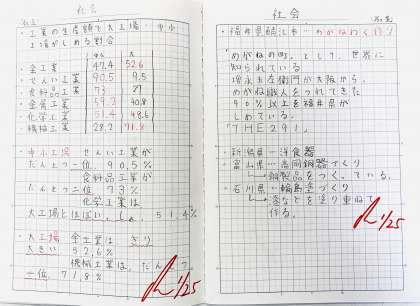 社会
工業の生産額で大工場・中小
工場がしめる割合
・全工業 47.4 52.6
・せんい工業 90.5 9.5
食料品工業 73 27
・金属工業 59.2 40.8
・化学工業 51.4 48.6
機械工業 28.2 71.8
・中小工場 せんい工業が
だんとつ一位 90.5%
食料品工業が
だんとつ二位 73%
化学工業は
大工場とほぼいっしょ 51.4%
・大工場 金工業は
大きい 52.6%
機械工業は、だんとつ
一位 71.8%
1/25
社会
・福井県鯖江市・めがねわく作り
「めがねの町」として、世界に
知られている
増永五左衛門が大阪から、
めがね職人をつれてきた
90%以上を福井県が
しめている。
「THE291」
・新潟県…洋食器
・富山県…高岡銅器づくり
銅製品をつくっている。
・石川県…輪島塗づくり
漆などを塗り重ねて
作る。
1/25